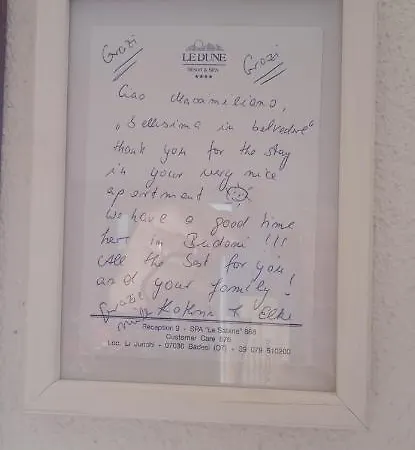 Grazi
Grazi
LE DUNE
RESORT & SPA
Ciao Macamiliano,
„Bellissima in belvedere“
thank you for the stay
in your very nice
apartment
We have a good time
here in Budoni !!!
All the Best for you!
and your family -
Grazie
mille
Elke
Reception 9 - SPA "Le Sabine" 888
Customer Care 878
Loc. Li Junchi - 07030 Badesi (OT) - 39 079 510200